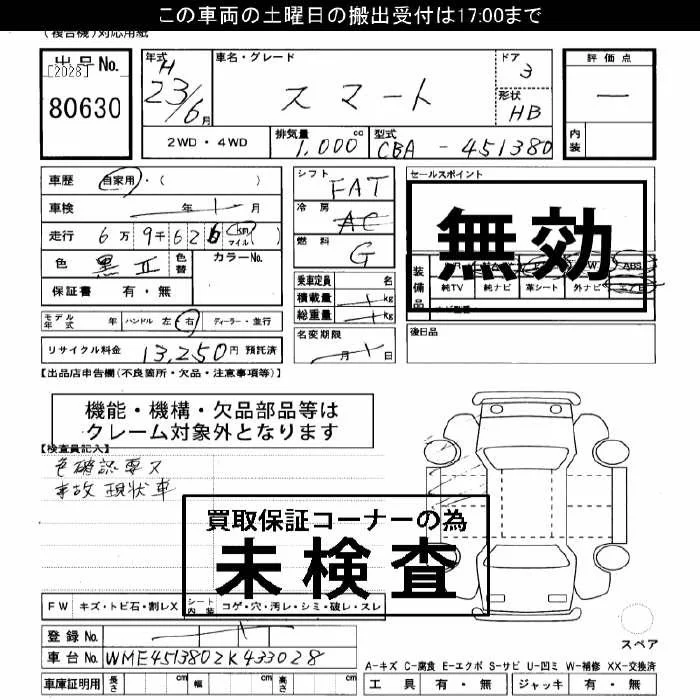 この車両の土曜日の搬出受付は17:00まで
(複合機)対応用紙
出品No. [2028] 80630
年式 H 23/6月
車名・グレード スマート
ドア 3
形状 HB
評価点 —
内装
2WD・4WD 排気量 1,000 cc 型式 CBA - 451380
車歴 自家用・( )
車検 年 月
走行 6万9千626 km マイル( )
色 黒 色替 カラーNo.
保証書 有・無
モデル年式 年 ハンドル 左 右 ディーラー・並行
リサイクル料金 13,250円 預託済
シフト FAT
冷房 AC
燃料 G
乗車定員 名
積載量 kg
総重量 kg
名変期限 月 日
セールスポイント
無効
装備品 ABS
純TV 純ナビ 革シート 外ナビ
後日品
【出品店申告欄(不良箇所・欠品・注意事項等)】
機能・機構・欠品部品等は
クレーム対象外となります
【検査員記入】
色確認要ス
事故 現状車
買取保証コーナーの為
未検査
FW キズ・トビ石・割レX シート内装 コゲ・穴・汚レ・シミ・破レ・スレ
スペア
登録No.
車台No. WME4513802K433028
車庫証明用 長さ cm 幅 cm 高さ cm
A-キズ C-腐食 E-エクボ S-サビ U-凹ミ W-補修 XX-交換済
工具 有・無 ジャッキ 有・無